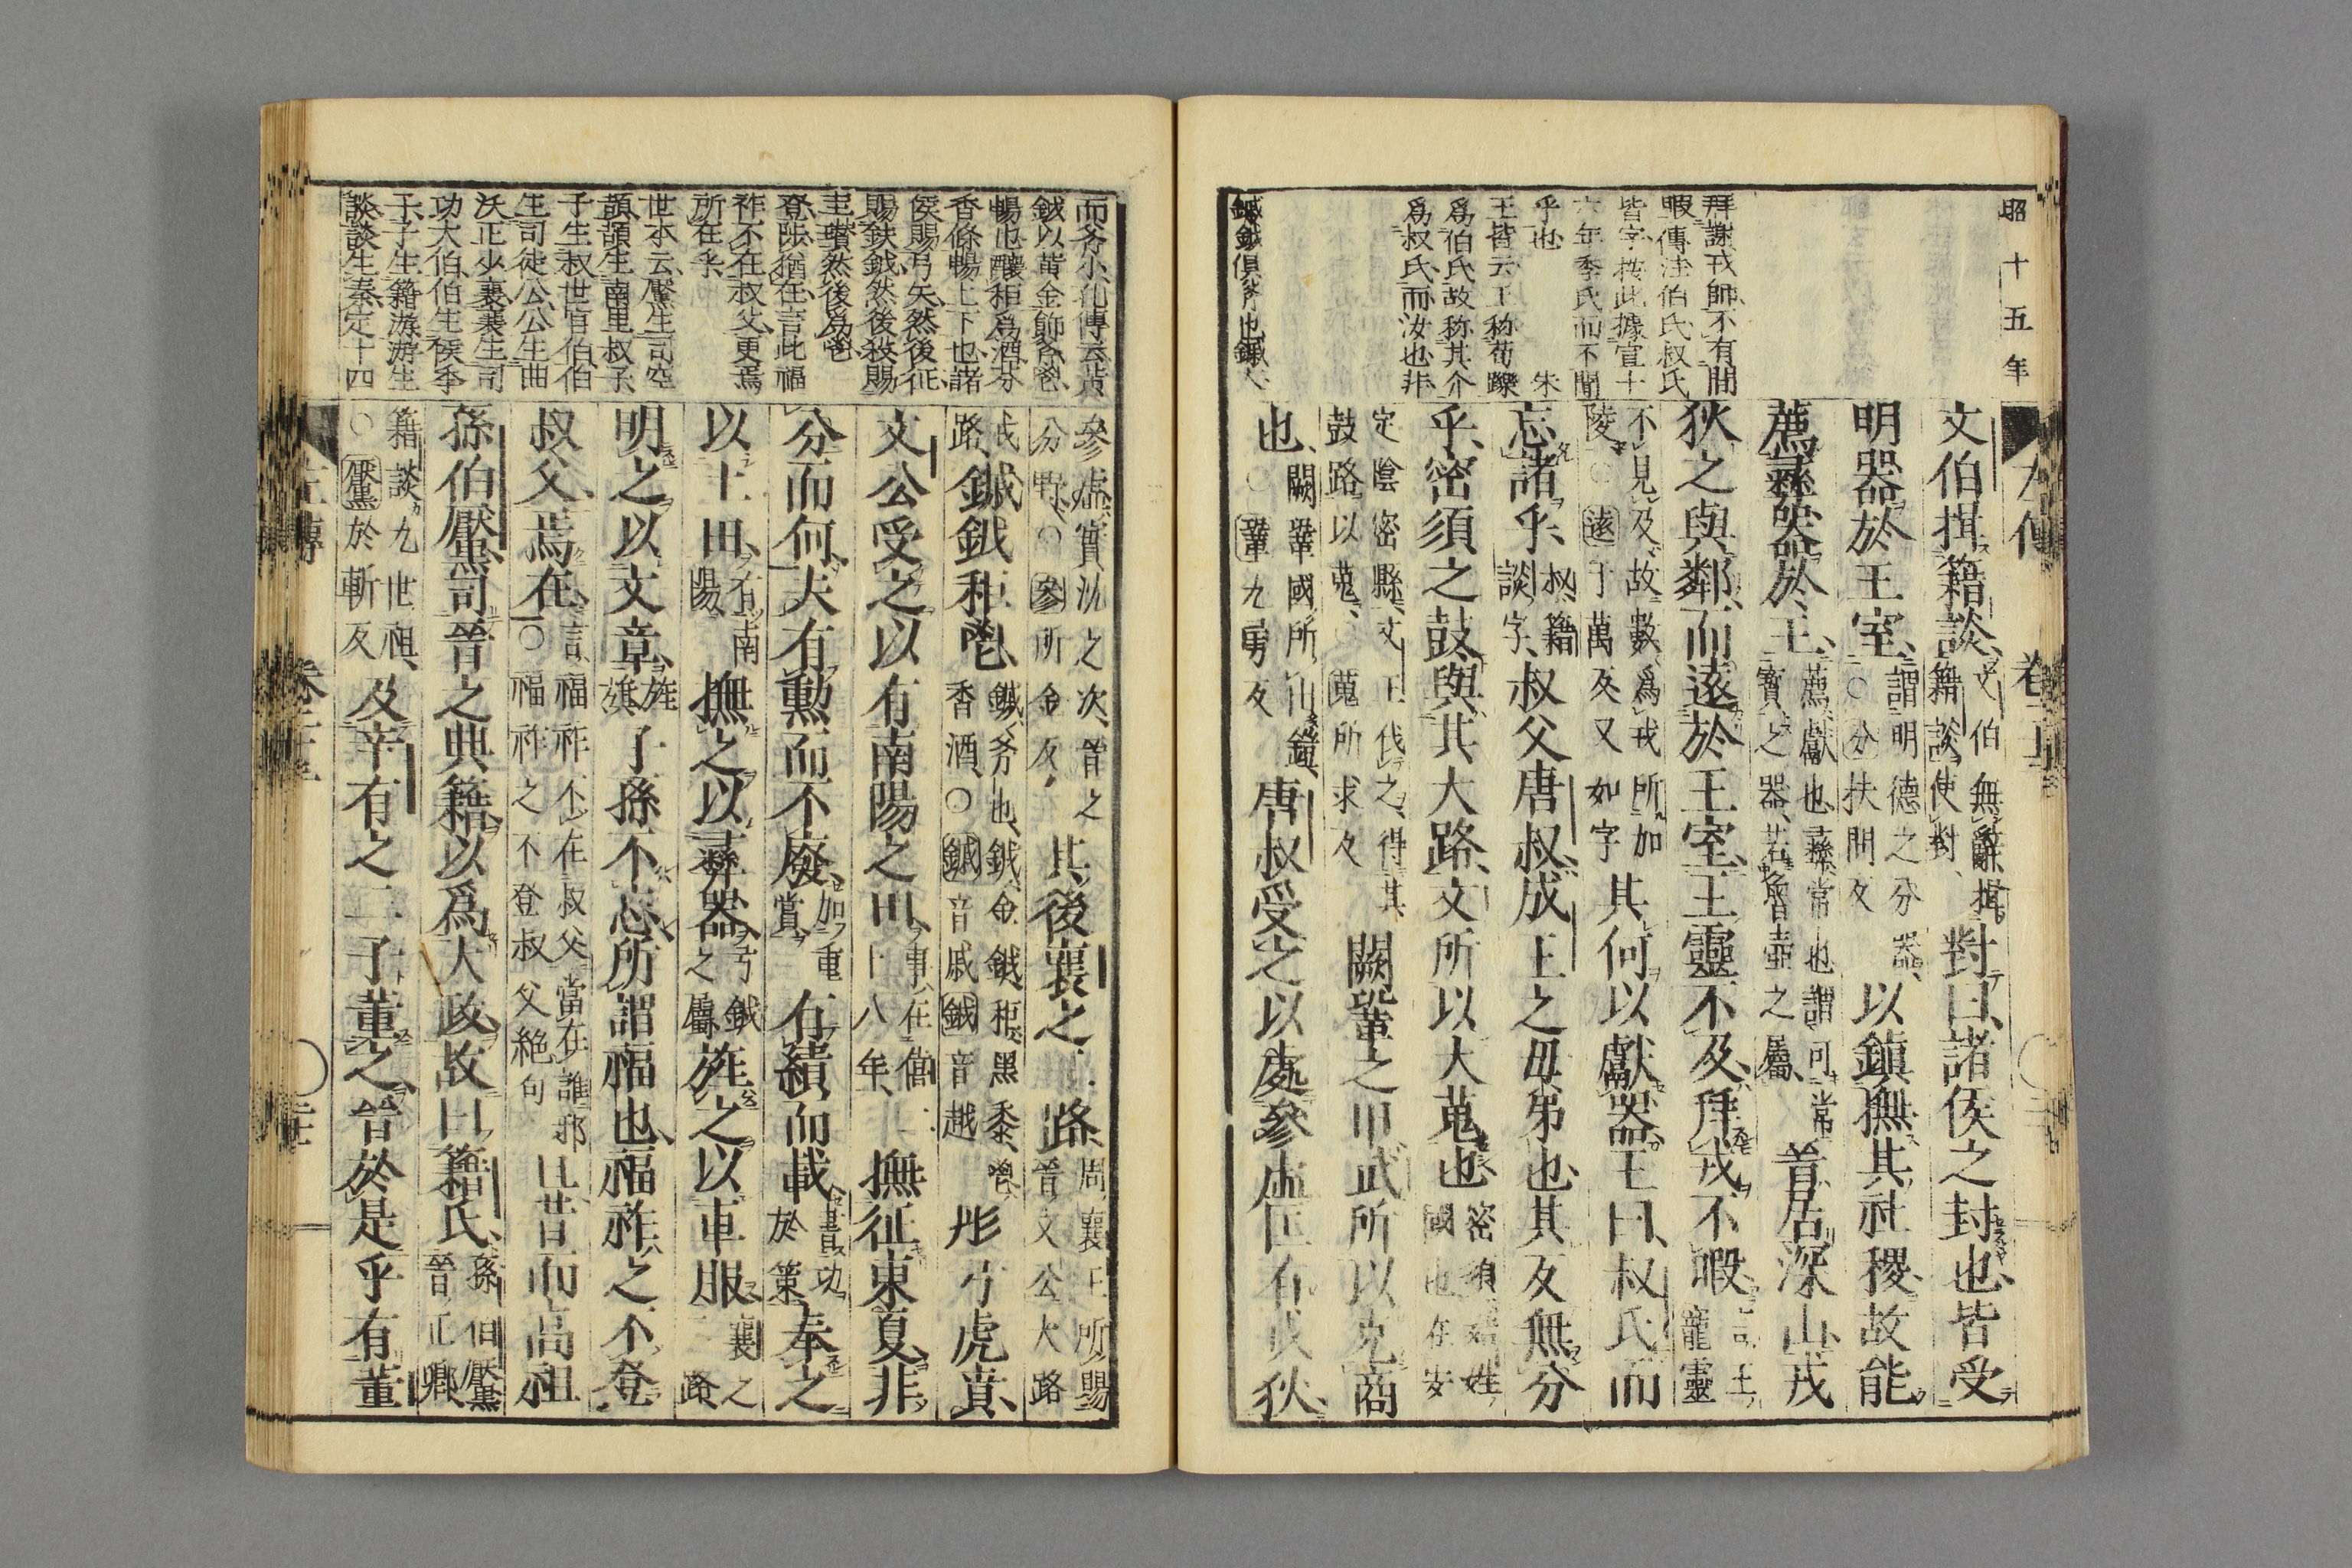 昭十五年
拜謝戎師不有間
暇傳注伯氏叔氏
皆字按此據宣十
六年季氏而不聞
乎也　朱
王皆云王称荀躒
爲伯氏故称其介
爲叔氏而汝也非
鏚鉞俱斧也鏚大
文伯揖籍談文伯無辭揖籍談使對對曰諸侯之封也皆受
明器於王室謂明德之分器〇分扶問反以鎮撫其社稷故能
薦彝器於王薦獻也彝常也謂可常寶之器若魯壺之屬晉居深山戎
狄之與鄰而遠於王室王靈不及拜戎不暇言王寵靈
不見及故數爲戎所加陵〇遠于萬反又如字其何以獻器王曰叔氏而
忘諸乎叔籍談字叔父唐叔成王之母弟也其反無分
乎密須之鼓與其大路文所以大蒐也密須姞姓國也在安
定陰密縣文王伐之得其鼓路以蒐〇蒐所求反闕鞏之甲武所以克商
也闕鞏國所出鎧〇鞏九勇反唐叔受之以處參虛匡有戎狄
而斧小孔傳云黃
鉞以黃金飾斧鬯
暢也釀秬爲酒芬
香條暢上下也諸
侯賜弓矢然後征
賜鈇鉞然後殺賜
圭瓚然後爲鬯
登陟猶在言此福
祚不在叔父更焉
所在乎
世本云黶生司空
頡頡生南里叔子
子生叔世官伯伯
生司徒公公生曲
沃正少襄襄生司
功大伯伯生侯季
子子生籍游游生
談談生秦定十四
參虛實沈之次晉之分野〇參所金反其後襄之二路周襄王所賜晉文公大路
戎路鏚鉞秬鬯鏚斧也鉞金鉞秬黑黍鬯香酒〇鏚音戚鉞音越彤弓虎賁
文公受之以有南陽之田事在僖二十八年撫征東夏非
分而何夫有勳而不廢加重賞有績而載書功於策奉之
以土田有南陽撫之以彝器弓鉞之屬旌之以車服襄之二路
明之以文章旌旗子孫不忘所謂福也福祚之不登
叔父焉在言福祚不在叔父當在誰邪〇福祚之不登叔父絶句且昔而高祖
孫伯黶司晉之典籍以爲大政故曰籍氏孫伯黶晉正卿
籍談九世祖〇黶於斬反及辛有之二子董之晉於是乎有董